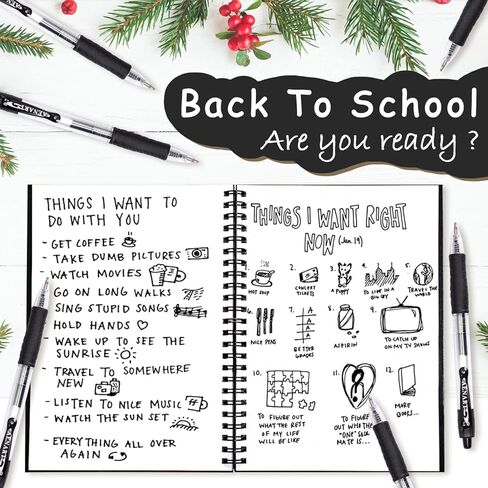 Back To School
Are you ready ?
THINGS I WANT TO
DO WITH YOU
- GET COFFEE
- TAKE DUMB PICTURES
- WATCH MOVIES
GO ON LONG WALKS
- SING STUPID SONGS
- HOLD HANDS
- WAKE UP TO SEE THE
SUNRISE
- TRAVEL TO SOMEWHERE
NEW
- LISTEN TO NICE MUSIC
- WATCH THE SUN SET
- EVERYTHING ALL OVER
AGAIN
THINGS I WANT RIGHT
NOW (Jan 19)
1.
HOT SOUP
2.
CONCERT
TICKETS
3.
A PUPPY
4.
TO LIVE IN A
BIG CITY
5.
TRAVEL THE
WORLD
6.
NICE PENS
7.
BETTER
GRADES
8.
ASPIRIN
9.
TO CATCH UP
ON MY TV SHOWS
10.
TO FIGURE OUT
WHAT THE REST
OF MY LIFE
WILL BE LIKE
11.
TO FIGURE
OUT WHO THE
"ONE" SOUL
MATE IS...
12.
MORE
BOOKS...